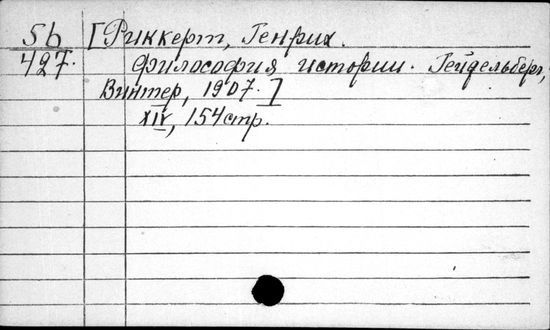 Sb [Риккерт, Генрих.
427. Философия истории. Гейдельберг,
Винтер, 1907.]
XIV, 154 стр.